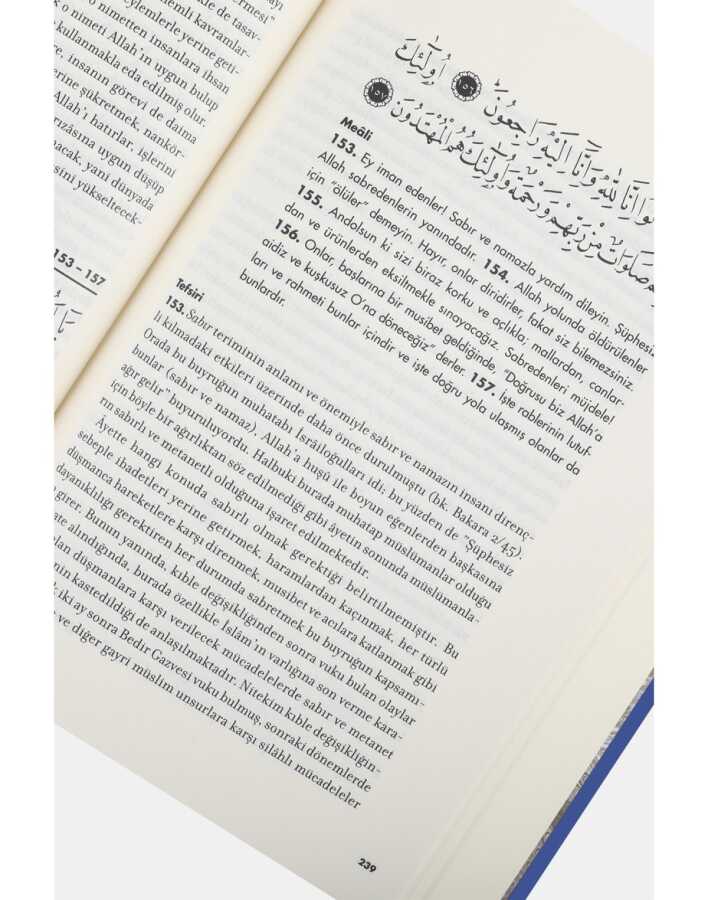 ermesi"
nemli kavramlar-
eylemlerle de tasav-
k o nimeti Allah'ın uygun bulup
nimetten insanlara ihsan
kullanmakla eda edilmiş olur.
insanın görevi de daima
erine şükretmek, nankör-
Allah'ı hatırlar, işlerini
rızâsına uygun düşüp
acak, yani dünyada
esini yükseltecek-
153 – 157
وَٱ إِنَّا لِلَّهِ وَإِنَّآ إِلَيْهِ رَاجِعُونَ ﴿١٥٦﴾ أُو۬لَٰٓئِكَ
صَلَوَاتٌ مِنْ رَبِّهِمْ وَرَحْمَةٌ وَأُو۬لَٰٓئِكَ هُمُ الْمُهْتَدُونَ ﴿١٥٧﴾
Meâli
153. Ey iman edenler! Sabır ve namazla yardım dileyin. Şüphesiz
Allah sabredenlerin yanındadır. 154. Allah yolunda öldürülenler
için "ölüler" demeyin. Hayır, onlar diridirler, fakat siz bilemezsiniz.
155. Andolsun ki sizi biraz korku ve açlıkla; mallardan, canlar-
dan ve ürünlerden eksilmekle sınayacağız. Sabredenleri müjdele!
156. Onlar, başlarına bir musibet geldiğinde, "Doğrusu biz Allah'a
aidiz ve kuşkusuz O'na döneceğiz" derler. 157. İşte rablerinin lutuf-
ları ve rahmeti bunlar içindir ve işte doğru yola ulaşmış olanlar da
bunlardır.
Tefsiri
153. Sabır teriminin anlamı ve önemiyle sabır ve namazın insanı direnç-
li kılmadaki etkileri üzerinde daha önce durulmuştu (bk. Bakara 2/45).
Orada bu buyruğun muhatabı İsrâiloğulları idi; bu yüzden de "Şüphesiz
bunlar (sabır ve namaz), Allah'a huşû ile boyun eğenlerden başkasına
ağır gelir" buyuruluyordu. Halbuki burada muhatap müslümanlar olduğu
için böyle bir ağırlıktan söz edilmediği gibi âyetin sonunda müslümanla-
rın sabırlı ve metanetli olduğuna işaret edilmektedir.
Âyette hangi konuda sabırlı olmak gerektiği belirtilmemiştir. Bu
sebeple ibadetleri yerine getirmek, haramlardan kaçınmak, her türlü
düşmanca hareketlere karşı direnmek, musibet ve acılara katlanmak gibi
dayanıklılığı gerektiren her durumda sabretmek bu buyruğun kapsamı-
girer. Bunun yanında, kıble değişikliğinden sonra vuku bulan olaylar
ate alındığında, burada özellikle İslâm'ın varlığına son verme kara-
olan düşmanlara karşı verilecek mücadelelerde sabır ve metanet
nin kastedildiği de anlaşılmaktadır. Nitekim kıble değişikliğin-
iki ay sonra Bedir Gazvesi vuku bulmuş, sonraki dönemlerde
ve diğer gayri müslim unsurlara karşı silâhlı mücadeleler
239